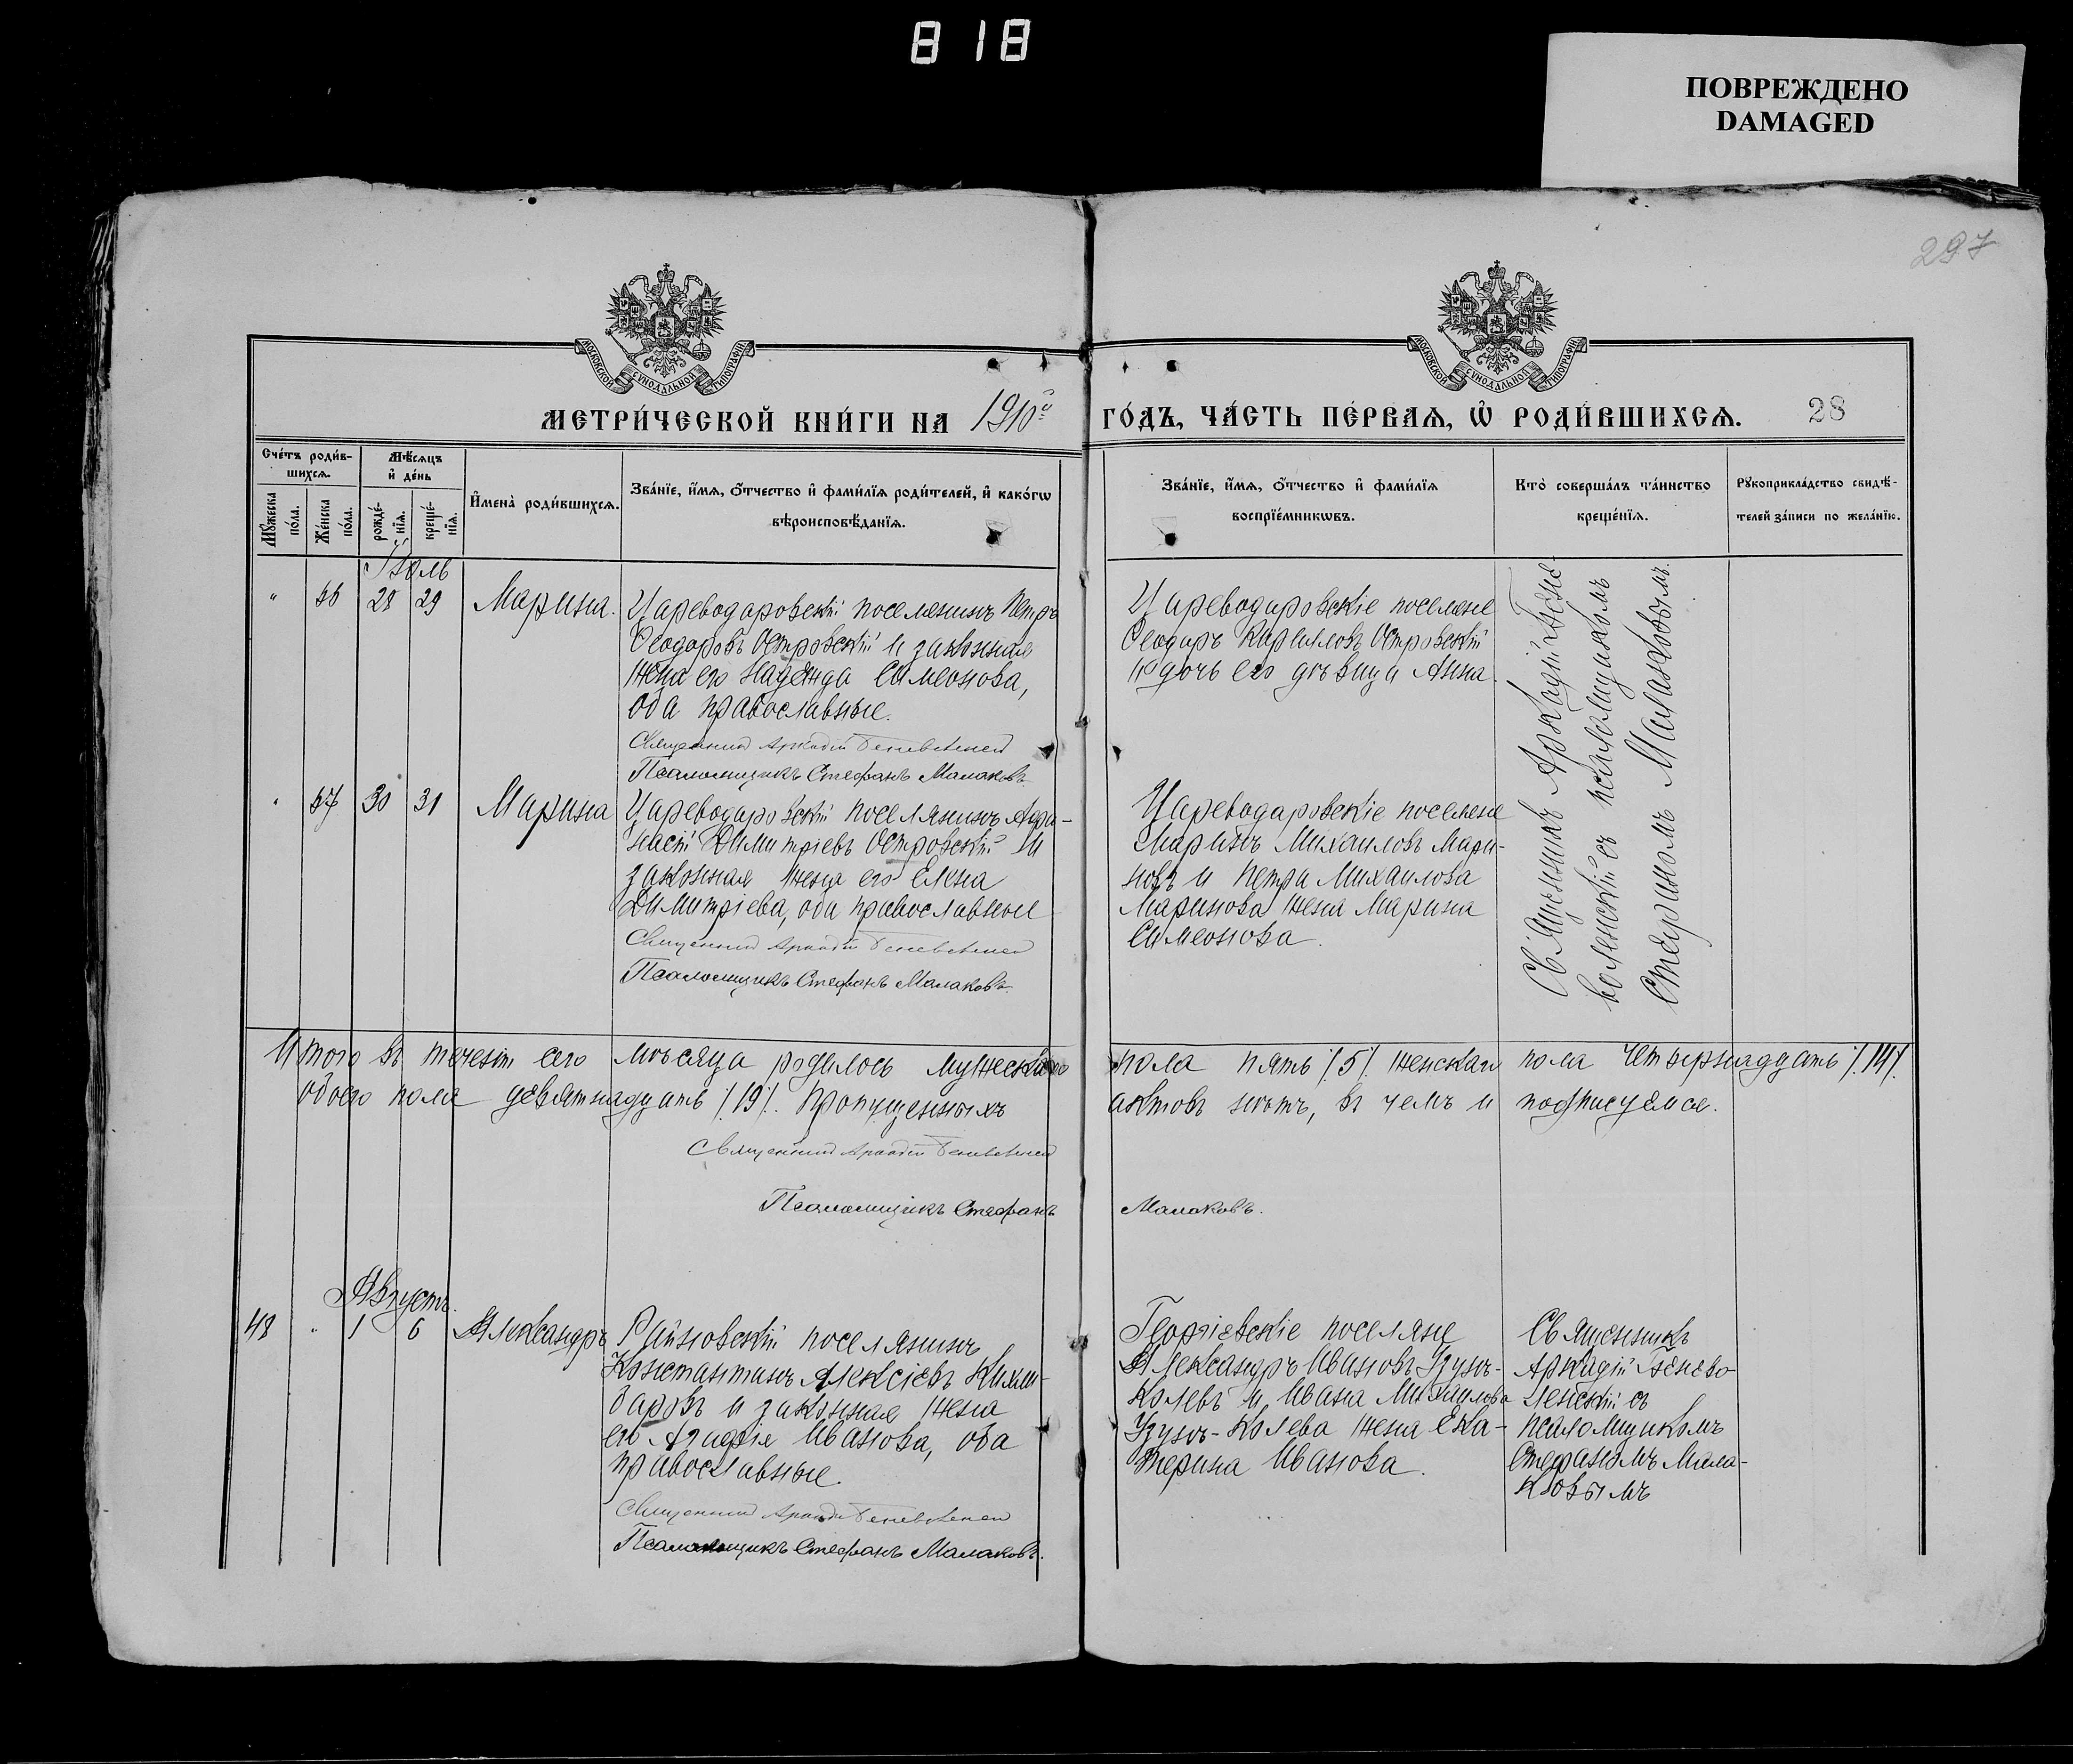 818
ПОВРЕЖДЕНО
DAMAGED
297
МОСКОВСКОЙ СѴНОДАЛЬНОЙ ТИПОГРАФІИ
МОСКОВСКОЙ СѴНОДАЛЬНОЙ ТИПОГРАФІИ
МЕТРИ́ЧЕСКОЙ КНИ́ГИ НА 1910й ГО́ДЪ, ЧА́СТЬ ПЕ́РВАѦ, Ѿ РОДИ́ВШИХСѦ. 28
Сче́тъ роди́в-
шихсѧ.
Мꙋ́жеска
по́ла.
Же́нска
по́ла.
Мѣ́сѧцъ
и҆ де́нь
рожде́-
нїѧ.
креще́-
нїѧ.
И҆мена̀ роди́вшихсѧ.
Зва́нїе, и҆́мѧ, ѻ҆́тчество и҆ фами́лїѧ роди́телей, и҆ како́гѡ
вѣроисповѣ́данїѧ.
Зва́нїе, и҆́мѧ, ѻ҆́тчество и҆ фами́лїѧ
воспрїе́мникѡвъ.
Кто̀ соверша́лъ та́инство
креще́нїѧ.
Рꙋкоприкла́дство свидѣ́-
телей за́писи по жела́нїю.
Іюль
" 56 28 29 Марина.
Цареводаровскій поселянинъ Петръ
Ѳеодоровъ Островскій и законная
жена его Надежда Симеонова,
оба православные.
Священникъ Аркадій Беневоленскій
Псаломщикъ Стефанъ Малаковъ.
Цареводаровскіе поселяне
Ѳеодоръ Кирилловъ Островскій
и дочь его дѣвица Анна.
Священникъ Аркадій Бене-
воленскій съ псаломщикомъ
Стефаномъ Малаковымъ.
" 57 30 31 Марина
Цареводаровскій поселянинъ Афа-
насій Димитріевъ Островскій и
законная жена его Елена
Димитріева, оба православные
Священникъ Аркадій Беневоленскій
Псаломщикъ Стефанъ Малаковъ.
Цареводаровскіе поселяне
Маринъ Михаиловъ Мари-
новъ и Петра Михаилова
Маринова жена Марина
Симеонова.
Итого въ теченіи сего мѣсяца родилось мужескаго пола пять /.5/. женскаго пола четырнадцать /.14/.
обоего пола девятнадцать /.19/. Пропущенныхъ актовъ нѣтъ, въ чемъ и подписуемся.
Священникъ Аркадій Беневоленскій
Псаломщикъ Стефанъ Малаковъ.
Августъ.
48 " 1 6 Александръ
Райновскій поселянинъ
Константинъ Алексіевъ
и законная жена
его Иванова, оба
православные.
Священникъ Аркадій Беневоленскій
Псаломщикъ Стефанъ Малаковъ.
Георгіевскіе поселяне
Александръ Ивановъ Узунъ-
Колевъ и Ивана Михаилова
Узунъ-Колева жена Ека-
терина Иванова.
Священникъ
Аркадій Бенево-
ленскій съ
псаломщикомъ
Стефаномъ Мала-
ковымъ